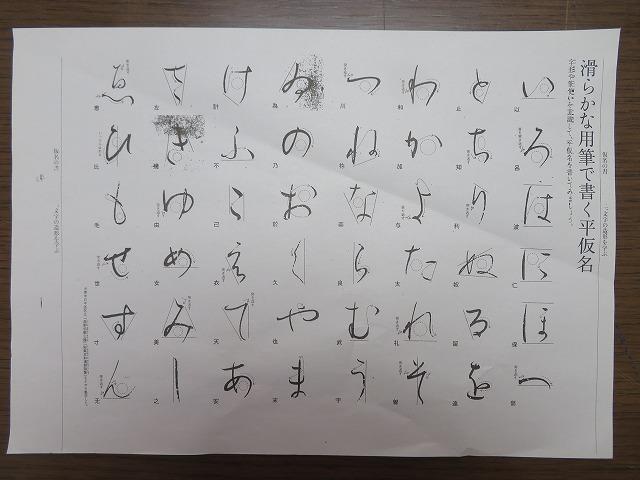 仮名の書 一文字の造形を学ぶ
滑らかな用筆で書く平仮名
字形や筆使いを意識して、平仮名を書いてみましょう。
い 以 ろ 呂 は 波 に 仁 ほ 保 へ 部
と 止 ち 知 り 利 ぬ 奴 る 留 を 遠
わ 和 か 加 よ 与 た 太 れ 礼 そ 曽
つ 川 ね 祢 な 奈 ら 良 む 武 う 宇
ゐ 為 の 乃 お 於 く 久 や 也 ま 末
け 計 ふ 不 こ 己 え 衣 て 天 あ 安
さ 左 き 幾 ゆ 由 め 女 み 美 し 之
ゑ 恵 ひ 比 も 毛 せ 世 す 寸 ん 无
仮名の書 一文字の造形を学ぶ